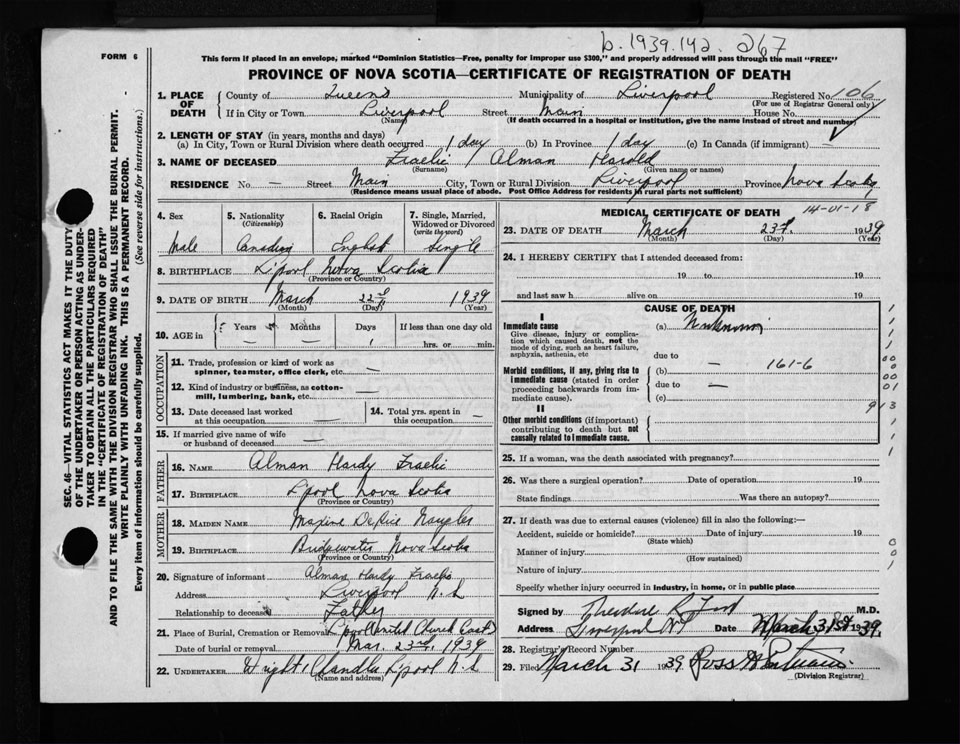 b.1939.142.267
FORM 6
This form if placed in an envelope, marked "Dominion Statistics—Free, penalty for improper use $300," and properly addressed will pass through the mail "FREE"
PROVINCE OF NOVA SCOTIA—CERTIFICATE OF REGISTRATION OF DEATH
SEC. 46—VITAL STATISTICS ACT MAKES IT THE DUTY
OF THE UNDERTAKER OR PERSON ACTING AS UNDER-
TAKER TO OBTAIN ALL THE PARTICULARS REQUIRED
IN THE "CERTIFICATE OF REGISTRATION OF DEATH"
AND TO FILE THE SAME WITH THE DIVISION REGISTRAR WHO SHALL ISSUE THE BURIAL PERMIT.
WRITE PLAINLY WITH UNFADING INK. THIS IS A PERMANENT RECORD.
Every item of information should be carefully supplied. (See reverse side for instructions.)
1. PLACE OF DEATH County of Queens Municipality of Liverpool Registered No. 106
(For use of Registrar General only)
If in City or Town Liverpool Street Main House No.
(Name) (If death occurred in a hospital or institution, give the name instead of street and number)
2. LENGTH OF STAY (in years, months and days)
(a) In City, Town or Rural Division where death occurred 1 day (b) In Province 1 day (c) In Canada (if immigrant) —
3. NAME OF DECEASED Fraelic Alman Harold
(Surname) (Given name or names)
RESIDENCE No — Street Main City, Town or Rural Division Liverpool Province Nova Scotia
(Residence means usual place of abode. Post Office Address for residents in rural parts not sufficient)
4. Sex 5. Nationality (Citizenship) 6. Racial Origin 7. Single, Married, Widowed or Divorced (write the word)
Male Canadian English Single
8. BIRTHPLACE L'pool Nova Scotia
(Province or Country)
9. DATE OF BIRTH March 22nd 1939
(Month) (Day) (Year)
10. AGE in Years Months Days If less than one day old
— — 1 hrs. or min.
OCCUPATION
11. Trade, profession or kind of work as
spinner, teamster, office clerk, etc. —
12. Kind of industry or business, as cotton-
mill, lumbering, bank, etc. —
13. Date deceased last worked
at this occupation — 14. Total yrs. spent in
this occupation —
15. If married give name of wife
or husband of deceased —
FATHER
16. NAME Alman Hardy Fraelic
17. BIRTHPLACE L'pool Nova Scotia
(Province or Country)
MOTHER
18. MAIDEN NAME Maxine Naugler
19. BIRTHPLACE Bridgewater Nova Scotia
(Province or Country)
20. Signature of informant Alman Hardy Fraelic
Address Liverpool N.S.
Relationship to deceased Father
21. Place of Burial, Cremation or Removal L'pool United Church East
Date of burial or removal Mar. 23rd, 1939
22. UNDERTAKER Wright Chandler L'pool N.S
(Name and address)
MEDICAL CERTIFICATE OF DEATH 14-01-18
23. DATE OF DEATH March 23d. 1939
(Month) (Day) (Year)
24. I HEREBY CERTIFY that I attended deceased from:
19 to 19
and last saw h alive on 19
CAUSE OF DEATH
I
Immediate cause (a) Unknown
Give disease, injury or complica-
tion which caused death, not the
mode of dying, such as heart failure,
asphyxia, asthenia, etc due to
Morbid conditions, if any, giving rise to (b) — 161-6
immediate cause (stated in order due to —
proceeding backwards from im-
mediate cause). (c)
II
Other morbid conditions (if important)
contributing to death but not
causally related to immediate cause.
25. If a woman, was the death associated with pregnancy?
26. Was there a surgical operation? Date of operation 19
State findings Was there an autopsy?
27. If death was due to external causes (violence) fill in also the following:—
Accident, suicide or homicide? Date of injury 19
(State which)
Manner of injury
(How sustained)
Nature of injury
Specify whether injury occurred in industry, in home, or in public place
Signed by Theodore R. Ford M.D.
Address Liverpool N.S Date March 31st 1939.
28. Registrar's Record Number
29. Filed March 31 1939
(Division Registrar)